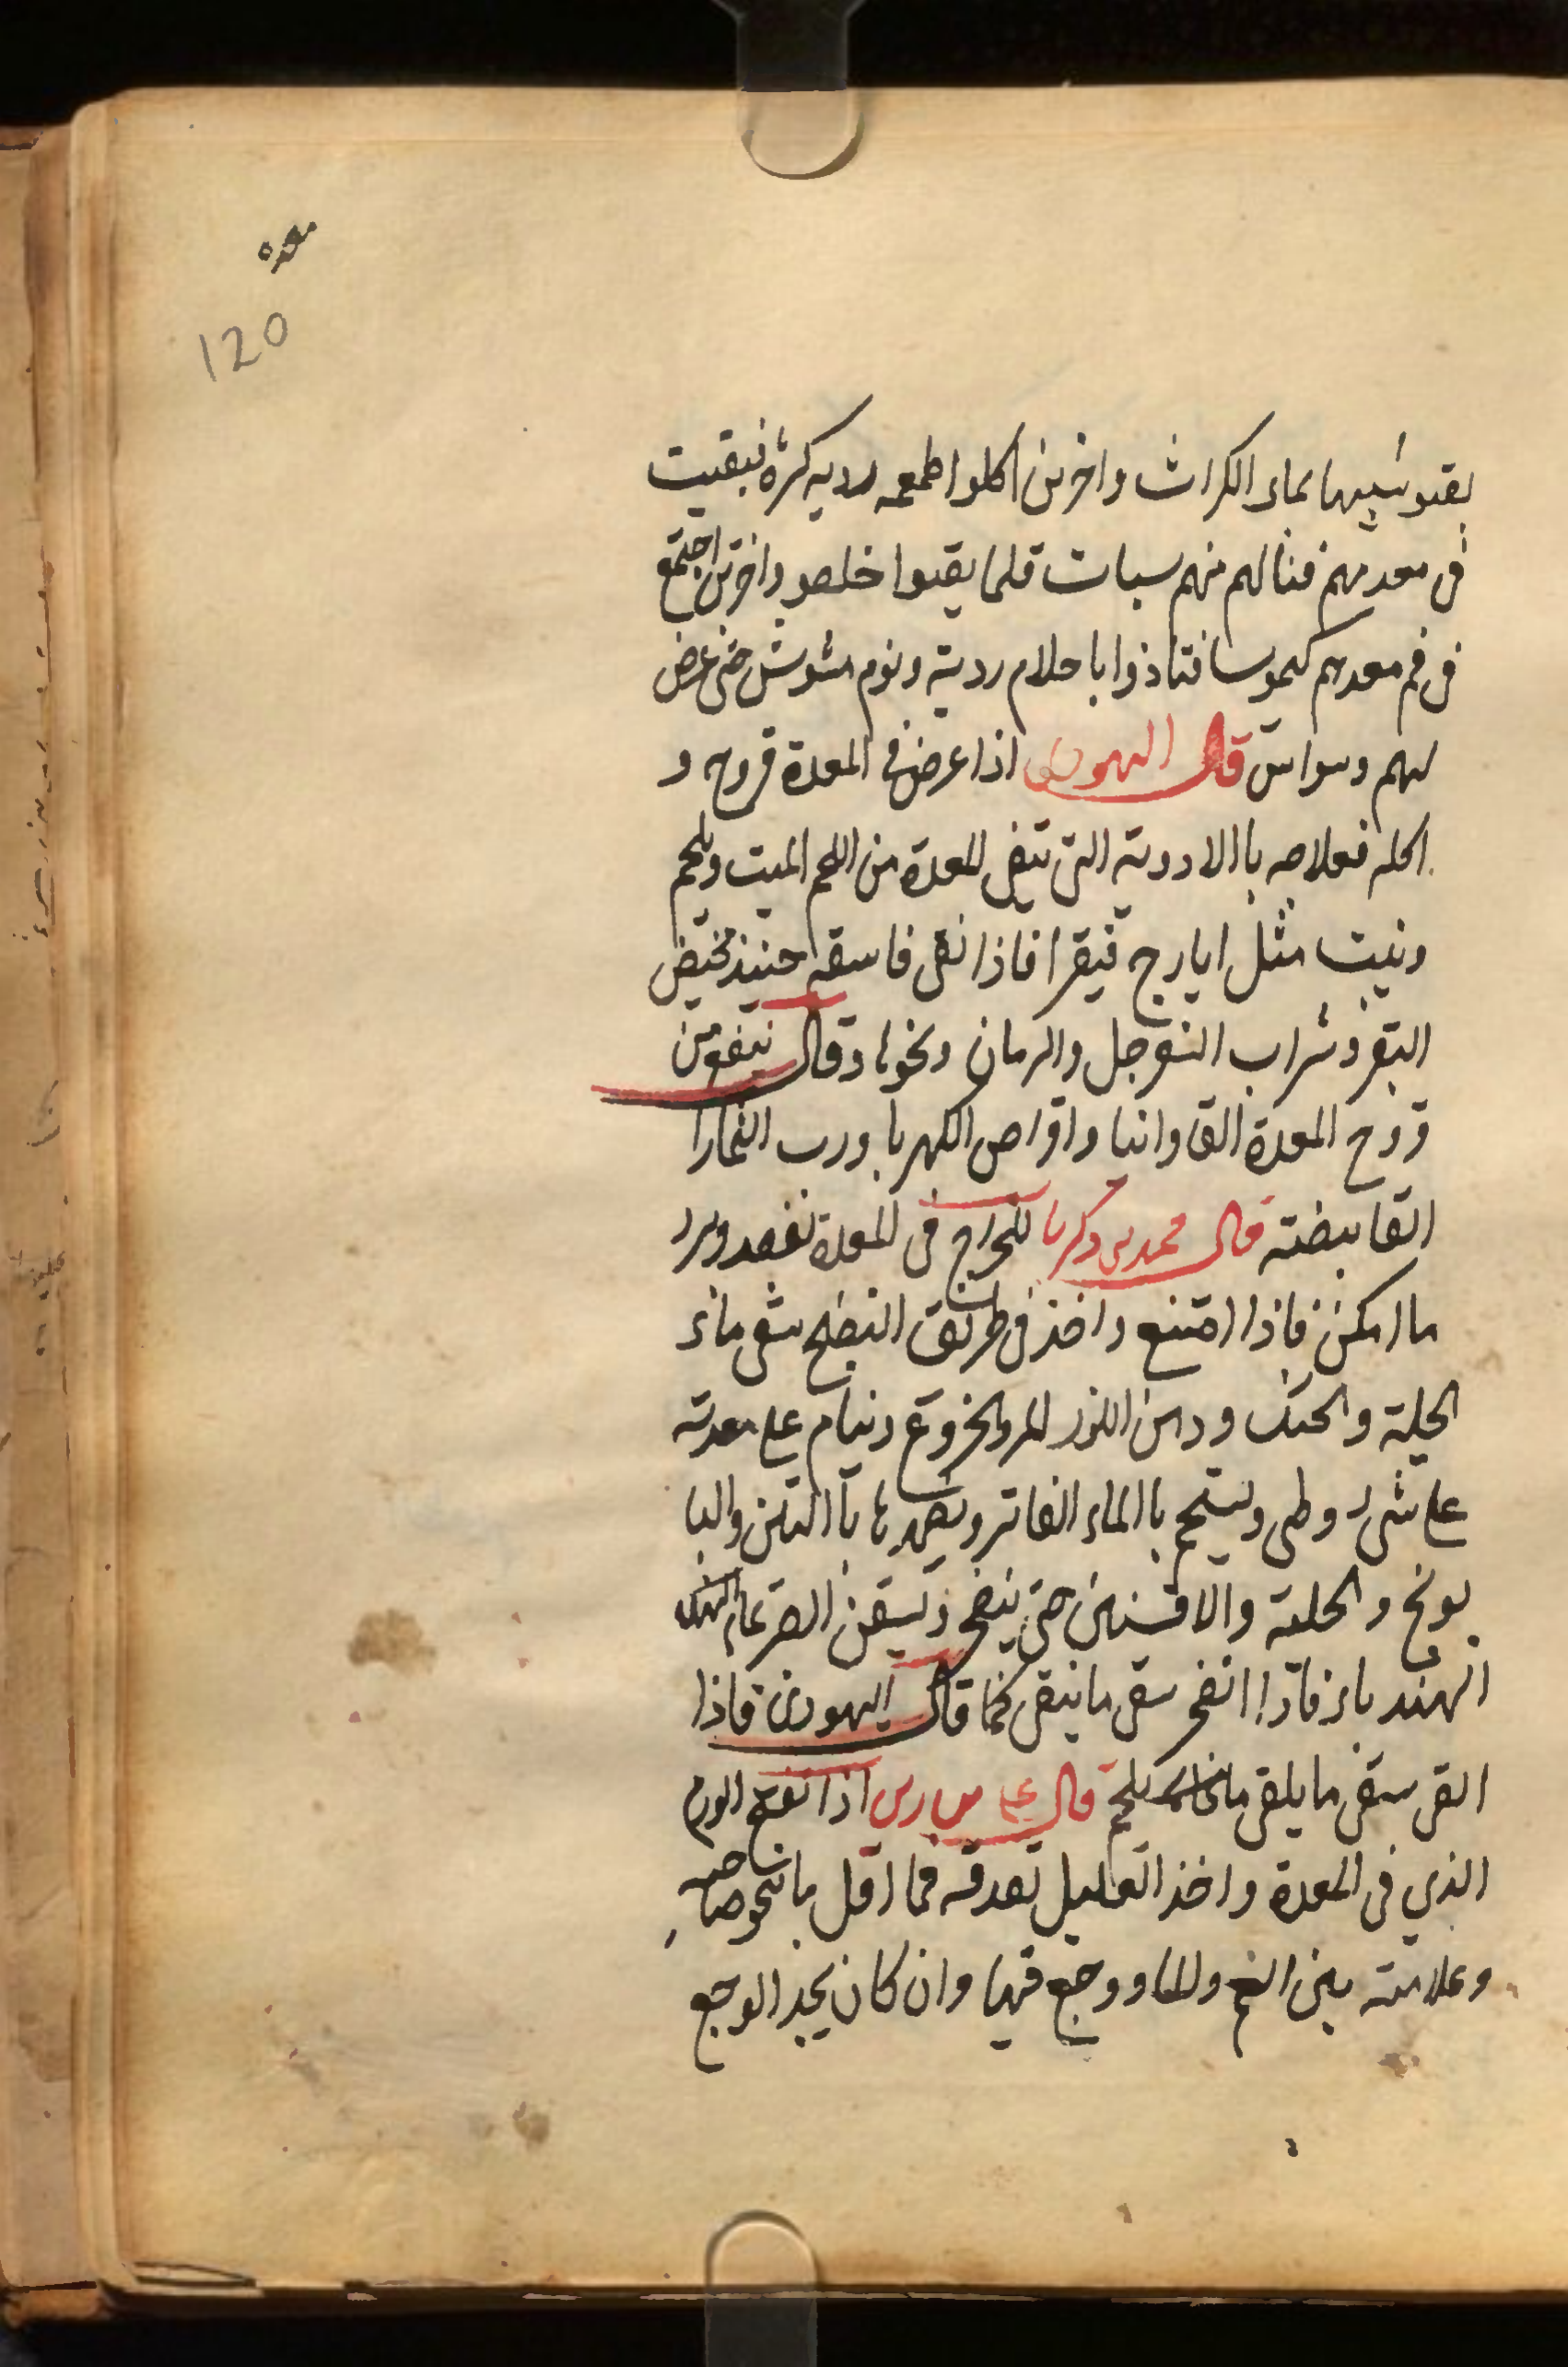 معده
120
بقيو شبيها بماء الكراث واخرين اكلوا اطعمه رديه كثيرة فبقيت
فى معدتهم فنالهم منهم سبات فلما يقيوا خلصو واخرين اجتمع
فى فم معدهم كيموسا فتاذوا باحلام ردية ونوم مشوش حتى عرض
لهم وسواس قال اليهودى اذا عرض فى المعدة قروح و
اكله فعلاجه باالادوية التى تنقى المعدة من اللحم الميت ويلحم
وينبت مثل ايارج فيقرا فاذا نقى فاسقه حينيذ مخيض
البقر وشراب السفرجل والرمان ونحوها وقال
قروح المعدة القاوانيا واقراص الكهربا ورب الثمارا
القابيضته قال محمد بن زكريا للخراج فى المعدة تفصد ويبرد
ما امكن فاذا امتنع واخذ فى طريق النضج سقى ماء
الحلبة والحسك ودهن اللوز المر والخروع وينام على معدته
على شى وطى ويستحم باالماء الفاتر ويضمدها باالتين والبا
بونج والحلبة والافسنتين حتى ينضج ويسقى
الهندباء فاذا انفجر سقى ما ينقى كما قال اليهودى فاذا
القى سقى ما يلقى يلحم قال اذا نفتح الورم
الذي فى المعدة واخذ العليل تعدفه فما اقل ما ينجو صاحبه
وعلامته بين وجع فيها وان كان يجد الوجع